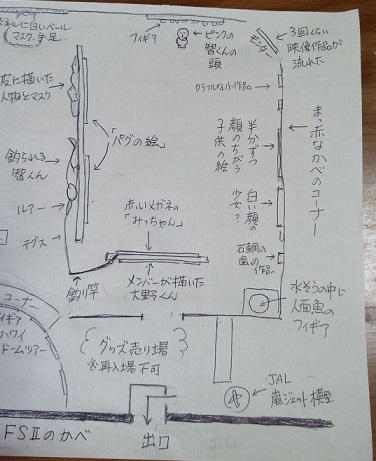 ネルに白いベール
マスク、手足
フィギア
ピンクの
智くんの
頭
モニター
3回くらい
映像作品が
流れた
カラフルなハート作品。
皮に描いた
人物とマスク
「パグの絵」
半分ずつ
顔のちがう
子供の絵
まっ赤なかべのコーナー
釣られる
智くん
ルアー
テグス
白い顔の
少女?
赤いメガネの
「みっちゃん」
石鯛の
歯の
作品。
釣り竿
メンバーが描いた
大野くん
水そうの中に
人面魚の
フィギア
コーナー
ギア
ハワイ
ドームツアー
グッズ売り場
※再入場不可
JAL
嵐ジェット模型
FSⅡのかべ
出口